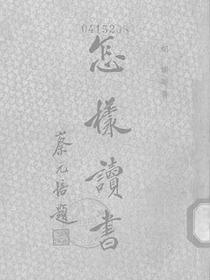 0415238
怎樣讀書
蔡元培題